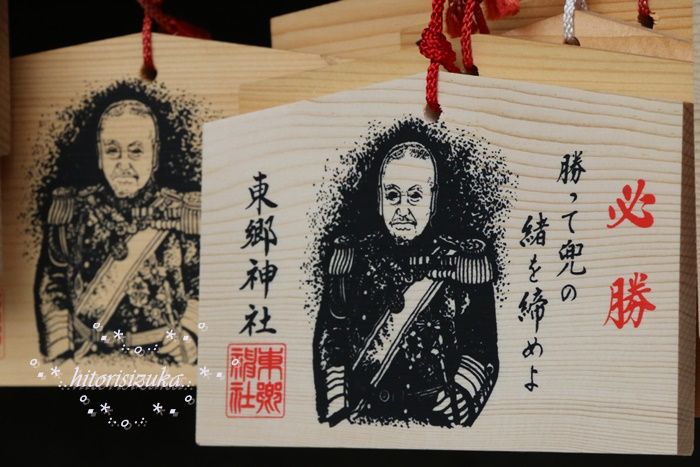 必勝
勝って兜の
緒を締めよ
東郷神社
東郷
神社
hitorisizuka